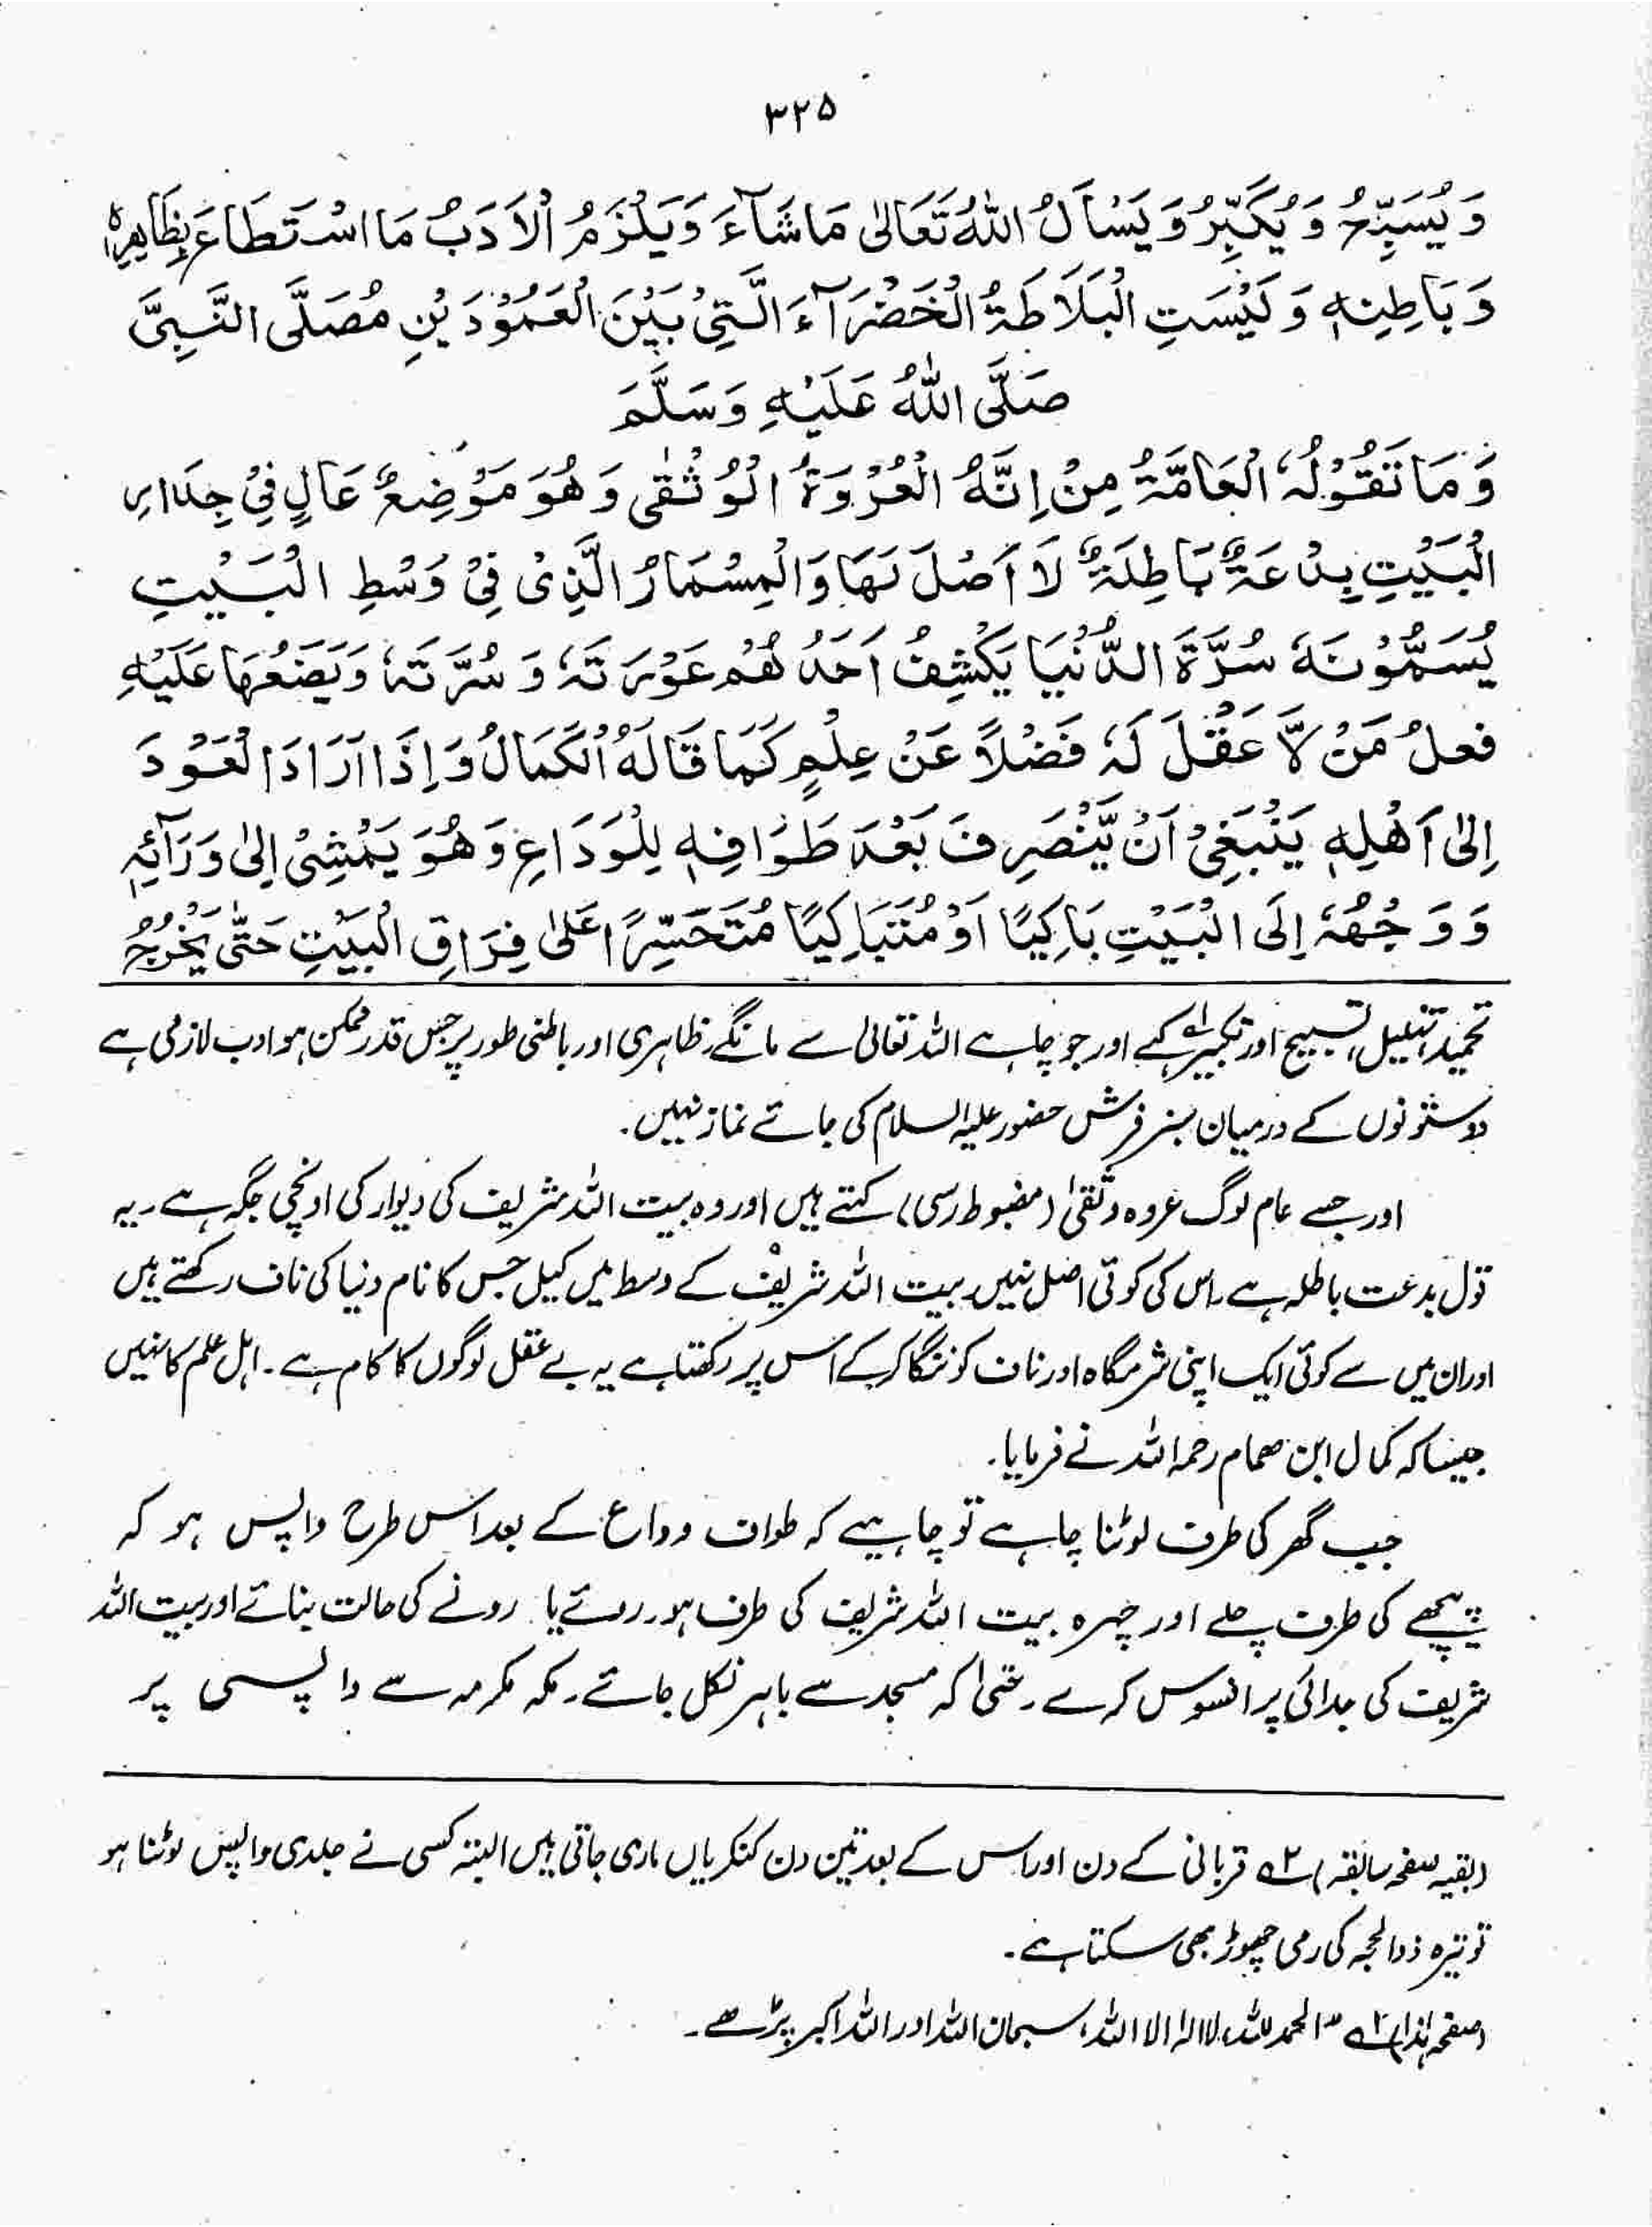 ۳۲۵
وَيُسَبِّحُ وَيُكَبِّرُ وَيَسْأَلُ اللّٰهَ تَعَالٰى مَا شَآءَ وَيَلْزَمُ الْاَدَبُ مَا اسْتَطَاعَ بِظَاهِرِهٖ
وَبَاطِنِهٖ وَلَيْسَتِ الْبَلَاطَةُ الْخَضْرَآءَ الَّتِيْ بَيْنَ الْعَمُوْدَيْنِ مُصَلَّى النَّبِيِّ
صَلَّى اللّٰهُ عَلَيْهِ وَسَلَّمَ
وَمَا تَقُوْلُهُ الْعَامَّةُ مِنْ اِنَّهُ الْعُرْوَةُ الْوُثْقٰى وَهُوَ مَوْضِعٌ عَالٍ فِيْ جِدَارِ
الْبَيْتِ بِدْعَةٌ بَاطِلَةٌ لَا اَصْلَ لَهَا وَالْمِسْمَارُ الَّذِيْ فِيْ وَسْطِ الْبَيْتِ
يُسَمُّوْنَهٗ سُرَّةَ الدُّنْيَا يَكْشِفُ اَحَدُهُمْ عَوْرَتَهٗ وَسُرَّتَهٗ وَيَضَعُهَا عَلَيْهِ
فعلُ مَنْ لَّا عَقْلَ لَهٗ فَضْلًا عَنْ عِلْمٍ كَمَا قَالَهُ الْكَمَالُ وَاِذَا اَرَادَ الْعَوْدَ
اِلٰى اَهْلِهٖ يَنْبَغِيْ اَنْ يَّنْصَرِفَ بَعْدَ طَوَافِهٖ لِلْوَدَاعِ وَهُوَ يَمْشِيْ اِلٰى وَرَآئِهٖ
وَوَجْهُهٗ اِلَى الْبَيْتِ بَاكِيًا اَوْ مُتَبَاكِيًا مُتَحَسِّرًا عَلٰى فِرَاقِ الْبَيْتِ حَتّٰى يَخْرُجُ
تحمید، تہلیل، تسبیح اور تکبیر کہے اور جو چاہے اللہ تعالیٰ سے مانگے، ظاہری اور باطنی طور پر جس قدر ممکن ہو ادب لازمی ہے
دو ستونوں کے درمیان سبز فرش حضور علیہ السلام کی جائے نماز نہیں۔
اور جسے عام لوگ عروہ وثقیٰ (مضبوط رسی) کہتے ہیں اور وہ بیت اللہ شریف کی دیوار کی اونچی جگہ ہے۔ یہ
قول بدعت باطلہ ہے۔ اس کی کوئی اصل نہیں۔ بیت اللہ شریف کے وسط میں کیل جس کا نام دنیا کی ناف رکھتے ہیں
اور ان میں سے کوئی ایک اپنی شرمگاہ اور ناف کو ننگا کرکے اس پر رکھتا ہے یہ بے عقل لوگوں کا کام ہے۔ اہل علم کا نہیں
جیسا کہ کمال ابن ھمام رحمہ اللہ نے فرمایا۔
جب گھر کی طرف لوٹنا چاہے تو چاہیے کہ طواف وداع کے بعد اس طرح واپس ہو کہ
پیچھے کی طرف چلے اور چہرہ بیت اللہ شریف کی طرف ہو۔ روئے یا رونے کی حالت بنائے اور بیت اللہ
شریف کی جدائی پر افسوس کرے۔ حتیٰ کہ مسجد سے باہر نکل جائے۔ مکہ مکرمہ سے واپسی پر
(بقیہ صفحہ سابقہ) ۲ قربانی کے دن اور اس کے بعد تین دن کنکریاں ماری جاتی ہیں البتہ کسی نے جلدی واپس لوٹنا ہو
تو تیرہ ذوالحجہ کی رمی چھوڑ بھی سکتا ہے۔
(صفحہ ہذا) الحمد للہ، لا الہ الا اللہ، سبحان اللہ اور اللہ اکبر پڑھے۔